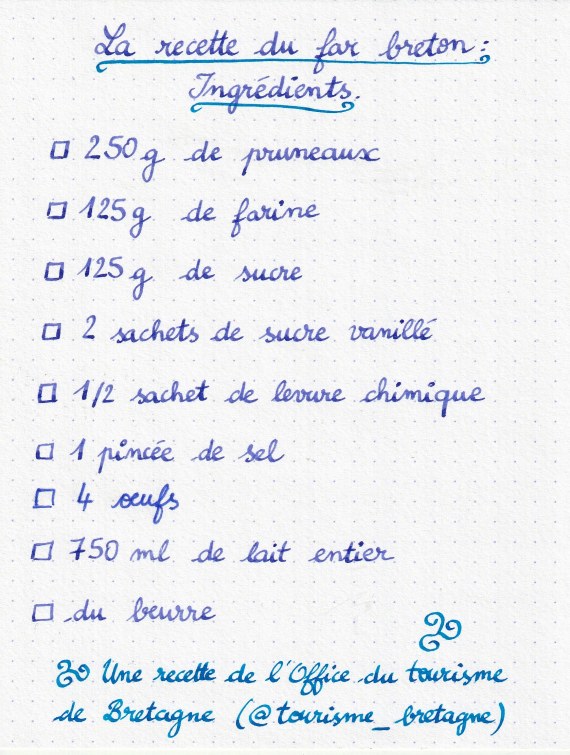 La recette du far breton :
Ingrédients.
250 g de pruneaux
125 g de farine
125 g de sucre
2 sachets de sucre vanillé
1/2 sachet de levure chimique
1 pincée de sel
4 œufs
750 ml de lait entier
du beurre
Une recette de l'Office du tourisme
de Bretagne (@tourisme_bretagne)